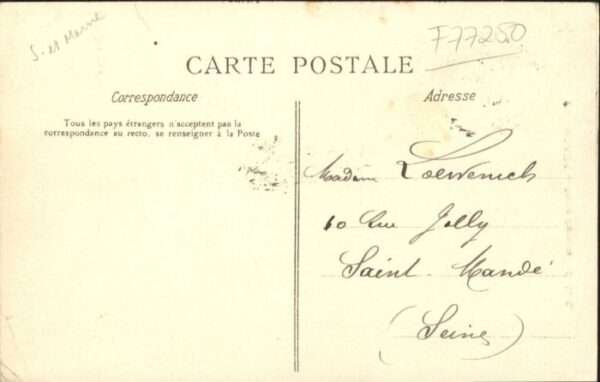 S. et Marne
F77250
CARTE POSTALE
Correspondance
Tous les pays étrangers n'acceptent pas la
correspondance au recto, se renseigner à la Poste
Adresse
Madame Loewenich
10 Rue Jolly
Saint-Mandé
(Seine)